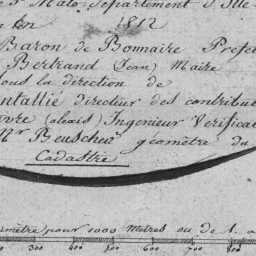 St Malo Département d'Ille
en 1812
Baron de Bonnaire Préfet
Bertrand (Jean) Maire
sous la direction de
ntallié directeur des contribut
vre (aléais) Ingénieur Vérifica
Mr Beuscher géomètre du
Cadastre
mètre pour 1000 Mètres ou de 1. a
300 400 500 600 700 800 900